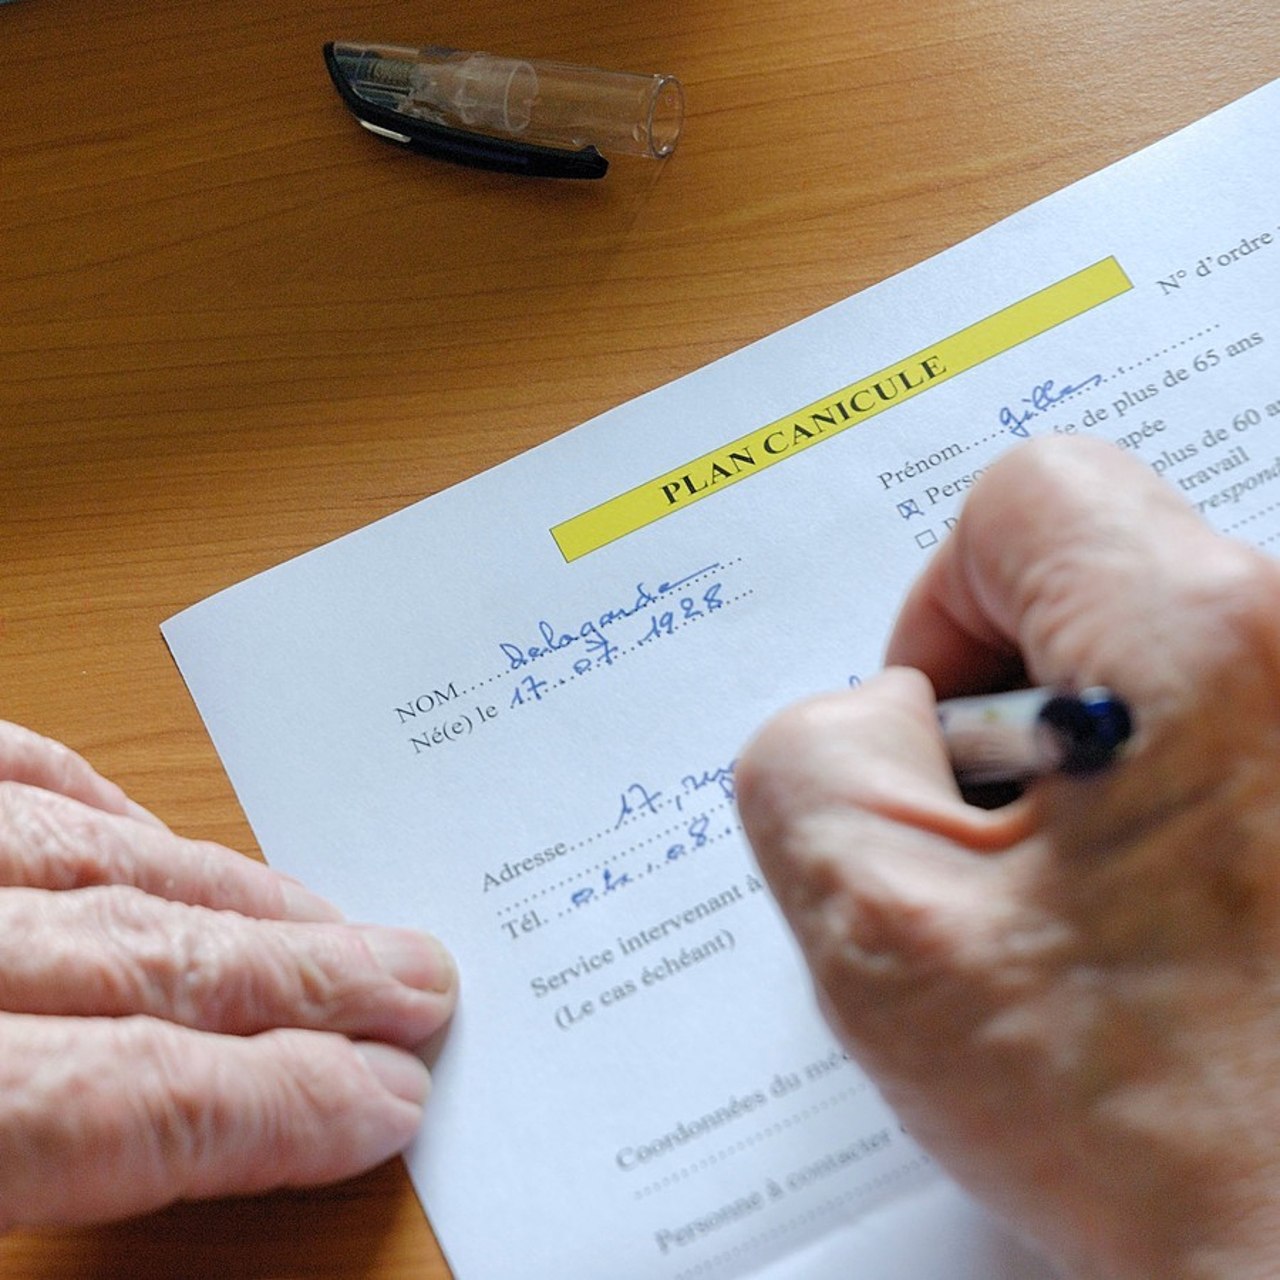 N° d'ordre
PLAN CANICULE
Prénom.....gilles...............
☒ Person e de plus de 65 ans
☐ apée
plus de 60
travail
respond
NOM......Delagarde....
Né(e) le 17...07...1928....
Adresse......17, rue
Tél. 08..
Service intervenant à
(Le cas échéant)
Coordonnées du
Personne à contacter